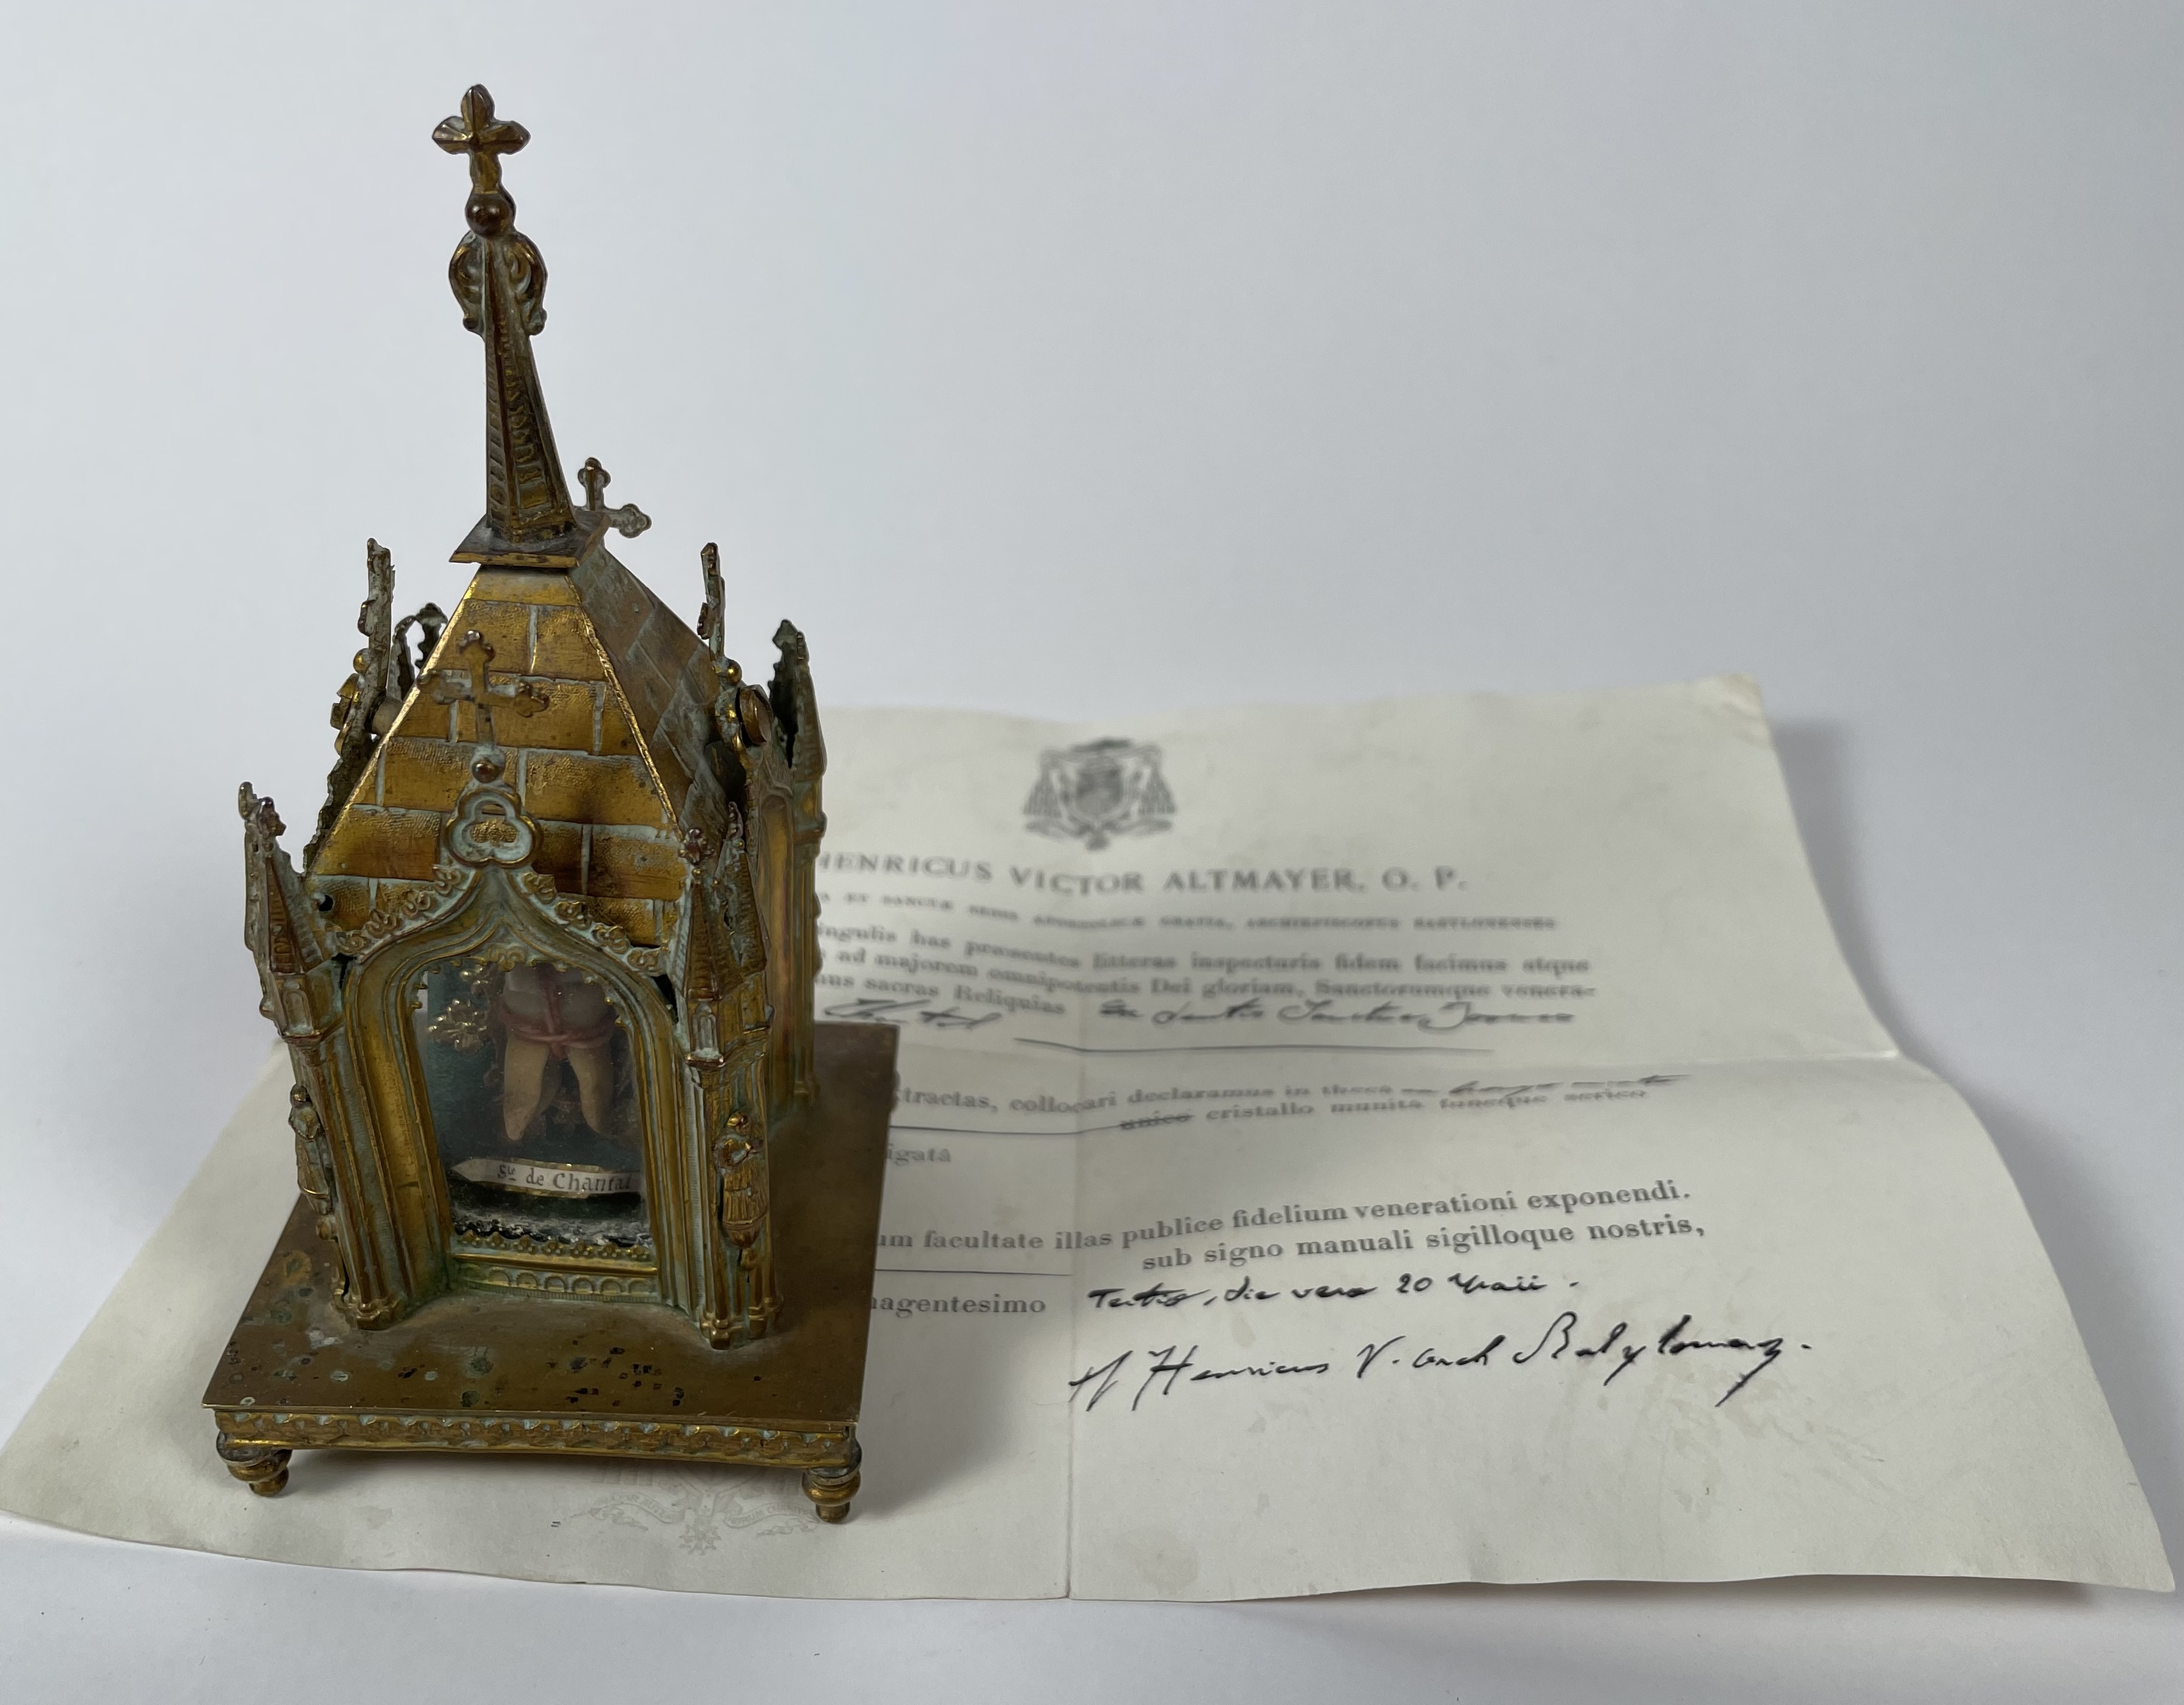 HENRICUS VICTOR ALTMAYER, O. P.
ET SANCTÆ SEDIS APOSTOLICÆ GRATIA, ARCHIEPISCOPUS BABYLONENSIS
ingulis has præsentes litteras inspecturis fidem facimus atque
ad majorem omnipotentis Dei gloriam, Sanctorumque venera-
sacras Reliquias Ex dentis Sanctæ
Chantal
tractas, collocari declaramus in thecâ ex
unico cristallo munitâ funeque serico
igatâ
um facultate illas publice fidelium venerationi exponendi.
sub signo manuali sigilloque nostris,
nagentesimo Tertio, die vero 20 Maii.
Henricus V. Arch
Ste de Chantal